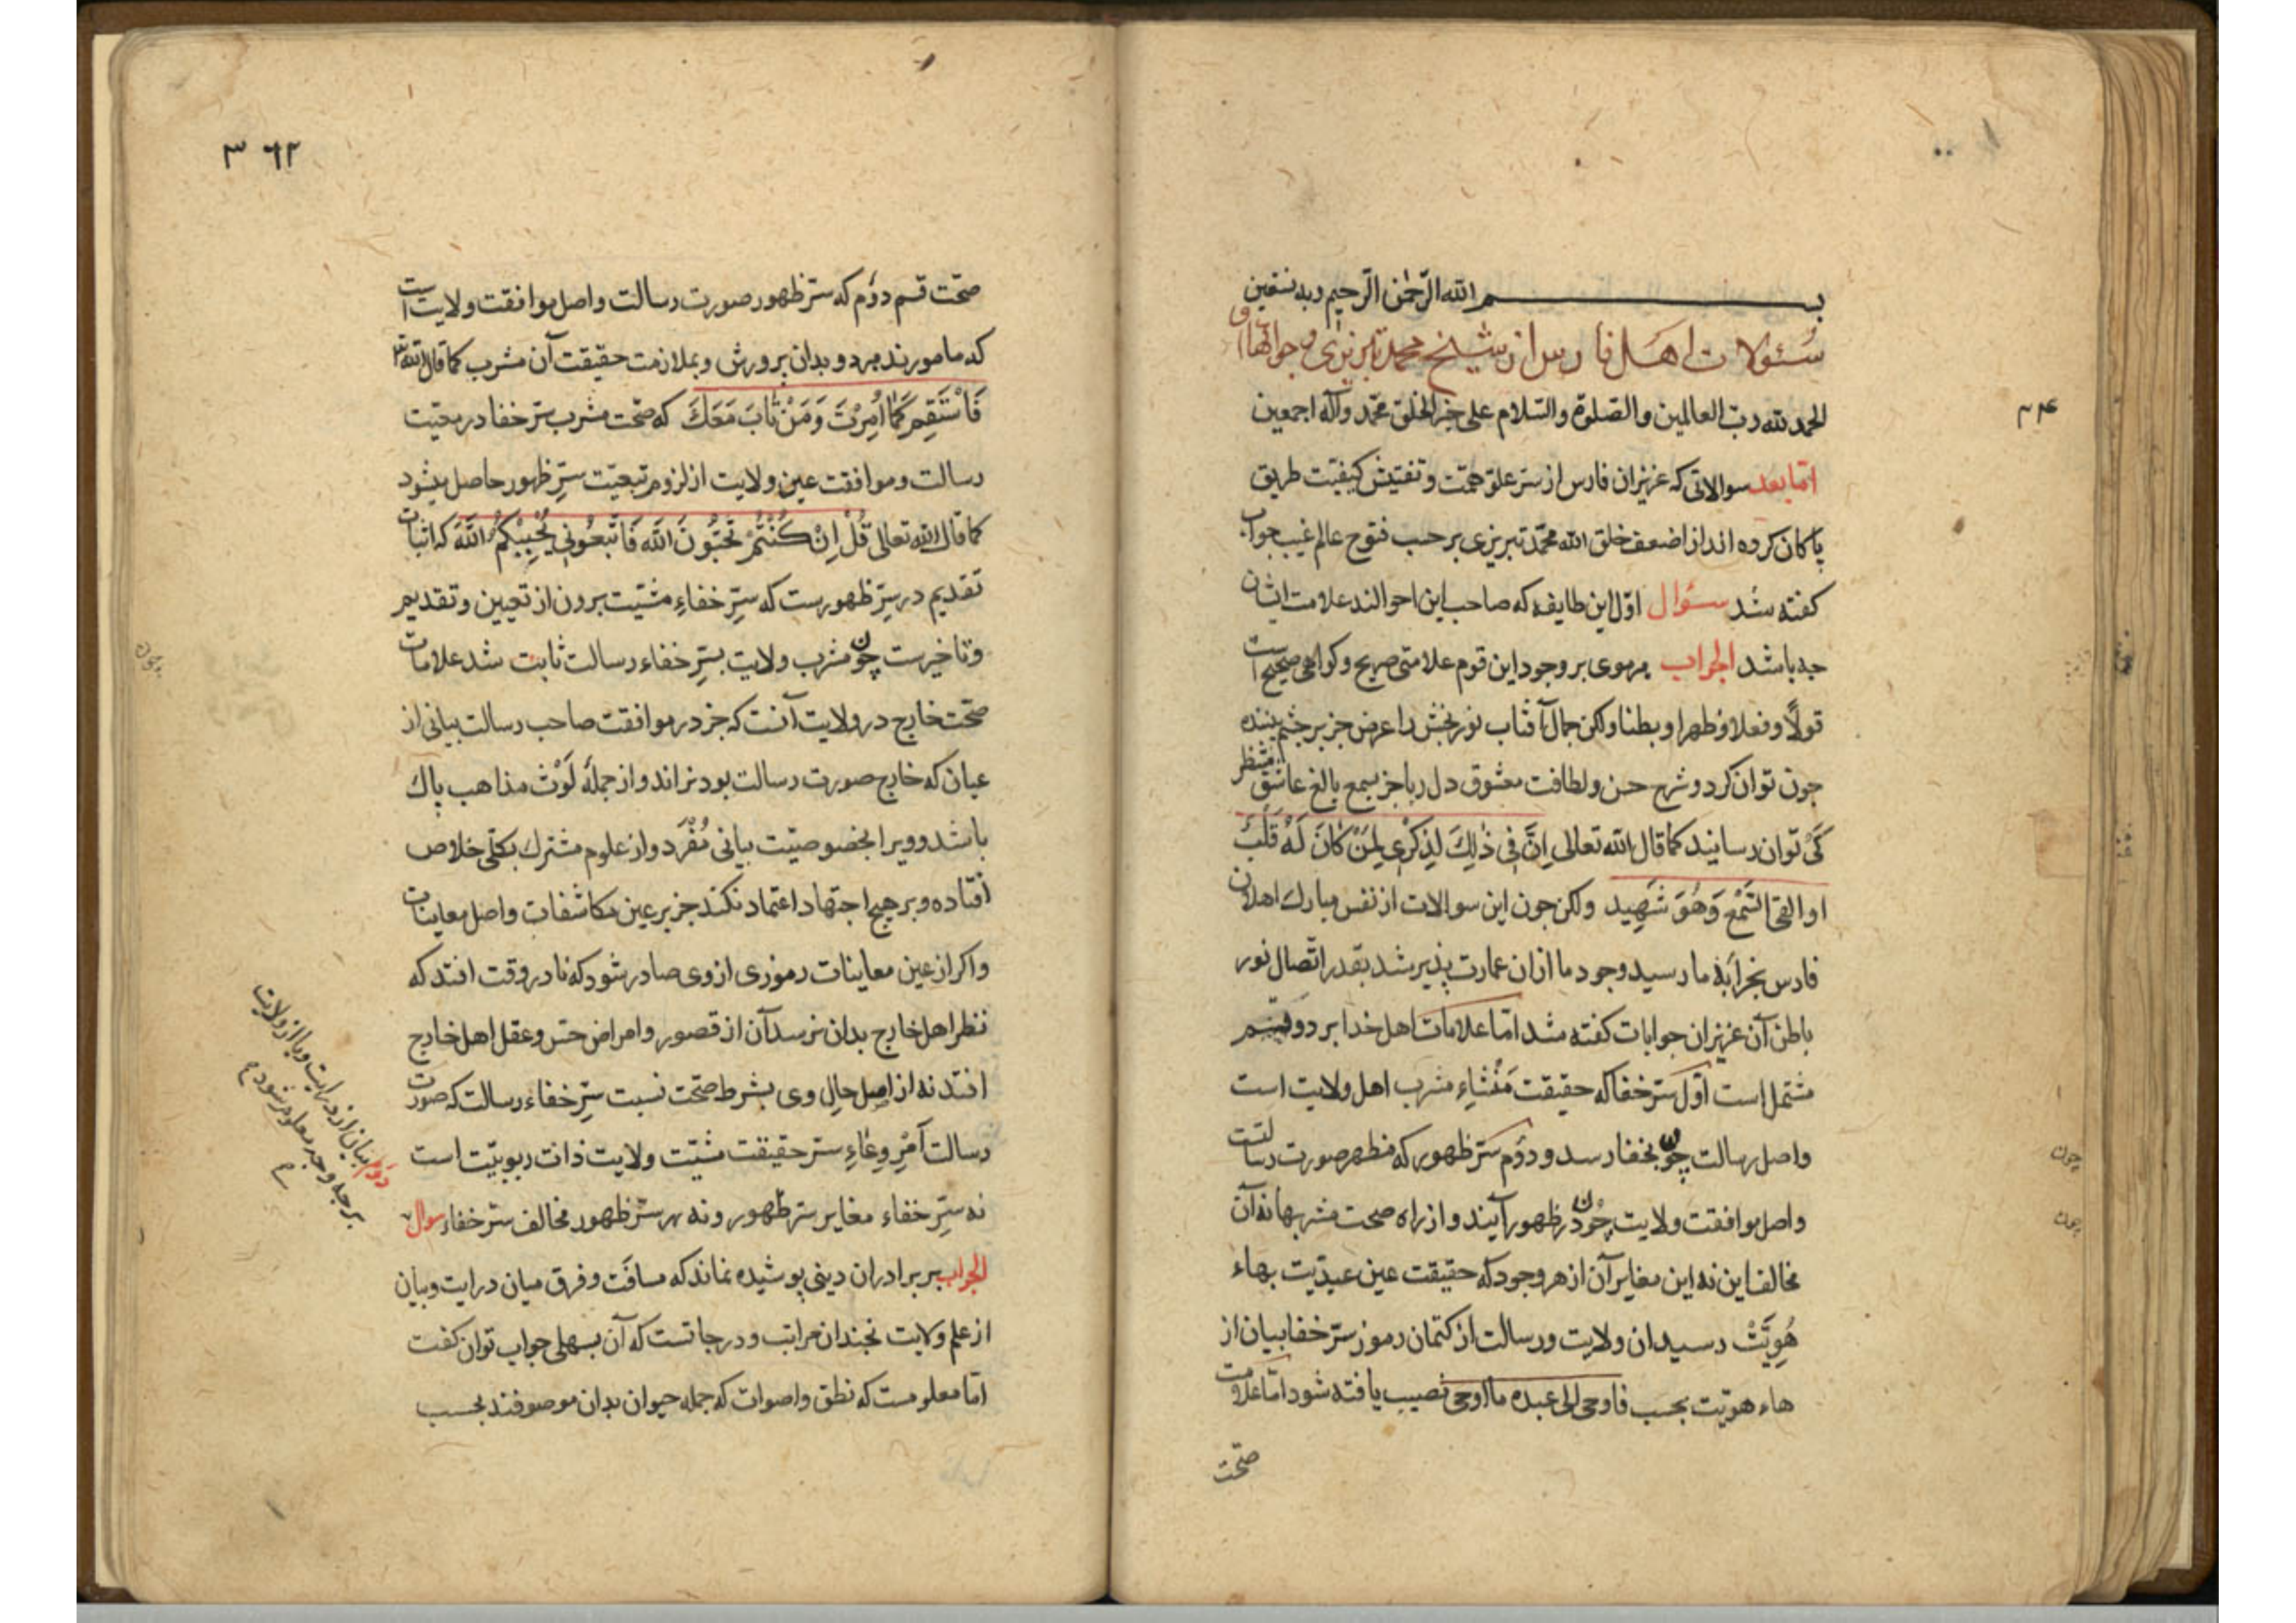 بسم الله الرّحمن الرّحیم وبه نستعین
سئولات اهل فارس از شیخ محمد تبریزی و جوابها
الحمد لله ربّ العالمین والصّلوة والسّلام علی خیر الخلق محمّد وآله اجمعین
امّا بعد سوالاتی که عزیزان فارس از سرّ علوّ همّت و تفتیش کیفیّت طریق
پاکان کرده اند از اضعف خلق الله محمّد تبریزی بر حسب فتوح عالم غیب جواب
کفته شد سئوال اوّل این طایفه که صاحب این احوالند علامت ایشان
چه باشد الجواب هر موی بر وجود این قوم علامتی صریح و کواهی صحیح است
قولًا وفعلا وظهرا وبطنا ولکن جمال آفتاب نوربخش را عرض جز بر چشم بیننده
جون توان کرد و شرح حسن ولطافت معشوق دل ربا جز بسمع بالغ عاشق منتظر
کَیْ توان رسانید کما قال الله تعالی اِنَّ فی ذٰلِكَ لَذِکْرٰی لِمَنْ کَانَ لَهُ قَلْبٌ
او القی السَّمْعَ وَهُوَ شَهِید ولکن جون این سوالات از نفس مبارك اهلان
فارس بخرابۀ ما رسید وجود ما ازان عمارت پذیر شد بقدر اتّصال نور
باطن آن عزیزان جوابات کفته شد امّا علامات اهل خدا بر دو قسم
مشتمل است اوّل سرّ خفا که حقیقت مَنْشَاءِ مشرب اهل ولایت است
واصل رسالت چون بخفا رسد و دوُم سرّ ظهور که مظهر صورت رسالتست
واصل موافقت ولایت چون در ظهور آیند و از راه صحت مشربها نه آن
مخالف این نه این مغایر آن از هر وجود که حقیقت عین عبدیّت بهاء
هُوِیَّتْ رسید ان ولایت ورسالت از کتمان رموز سرّ خفا بیان از
هاء هویّت بحسب فاوحی الی عبده ما اوحی نصیب یافته شود امّا علامت
صحّت
۳۶۲
صحّت قسم دوُم که سرّ ظهور صورت رسالت واصل موافقت ولایت است
که مامورند مرد و بدان پرورش و بملازمت حقیقت آن مشرب کما قال الله تع
فَاسْتَقِمْ کَمَا اُمِرْتَ وَمَنْ تَابَ مَعَكَ که صحّت مشرب سرّ خفا در معیّت
رسالت وموافقت عین ولایت از لزوم تبعیّت سرّ ظهور حاصل میشود
کما قال الله تعالی قُلْ اِنْ کُنْتُمْ تُحِبُّونَ اللهَ فَاتَّبِعُونِی یُحْبِبْکُمُ اللهَ که اثبات
تقدیم در سرّ ظهورست که سرّ خفاءِ مشیّت برون از تعیین وتقدیم
وتاخیرست چون مشرب ولایت بسرّ خفاء رسالت ثابت شد علامات
صحّت خارج در ولایت آنست که جز در موافقت صاحب رسالت بیانی از
عیان که خارج صورت رسالت بود نراند و از جملۀ لَوْث مذاهب پاك
باشد و ویرا بخصوصیّت بیانی مُفْرَد و از علوم مشترك بکلّی خلاص
افتاده و بر هیچ اجتهاد اعتماد نکند جز بر عین مکاشفات واصل معاینات
واکر از عین معاینات رموزی از وی صادر شود که نادر وقت افتد که
نظر اهل خارج بدان نرسد آن از قصور وامراض حسّ وعقل اهل خارج
افتد نه از اصل حال وی بشرط صحّت نسبت سرّ خفاء رسالت که صورت
رسالت اَمْرِ وِعَاءِ سرّ حقیقت مشیّت ولایت ذات ربوبیّت است
نه سرّ خفاء مغایر سرّ ظهور ونه سرّ ظهور مخالف سرّ خفاء سوال
دوم بیان از درایت و یا از ولایت
بر چه وجه معلوم شود
الجواب بر برادران دینی پوشیده نماند که مسافت وفرق میان درایت وبیان
از علم ولایت نچندان مراتب ودرجاتست که آن بسهلی جواب توان کفت
امّا معلومست که نطق واصوات که جمله حیوان بدان موصوفند بحسب
چون